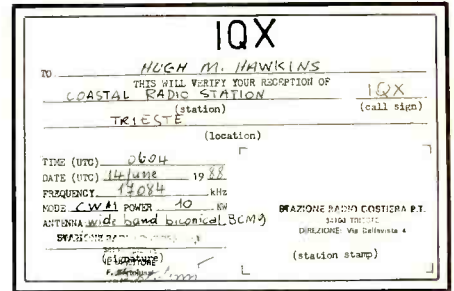 IQX
TO HUGH M. HAWKINS
THIS WILL VERIFY YOUR RECEPTION OF
COASTAL RADIO STATION IQX
(station) (call sign)
TRIESTE
(location)
TIME (UTC) 0604
DATE (UTC) 14/June 1988
FREQUENCY 17084 kHz
MODE CW A1 POWER 10 KW
ANTENNA wide band biconical BCM9
STAZIONE RADIO COSTIERA P.T.
34100 TRIESTE
DIREZIONE: Via Bellavista 4
STAZIONE
(signature)
(station stamp)